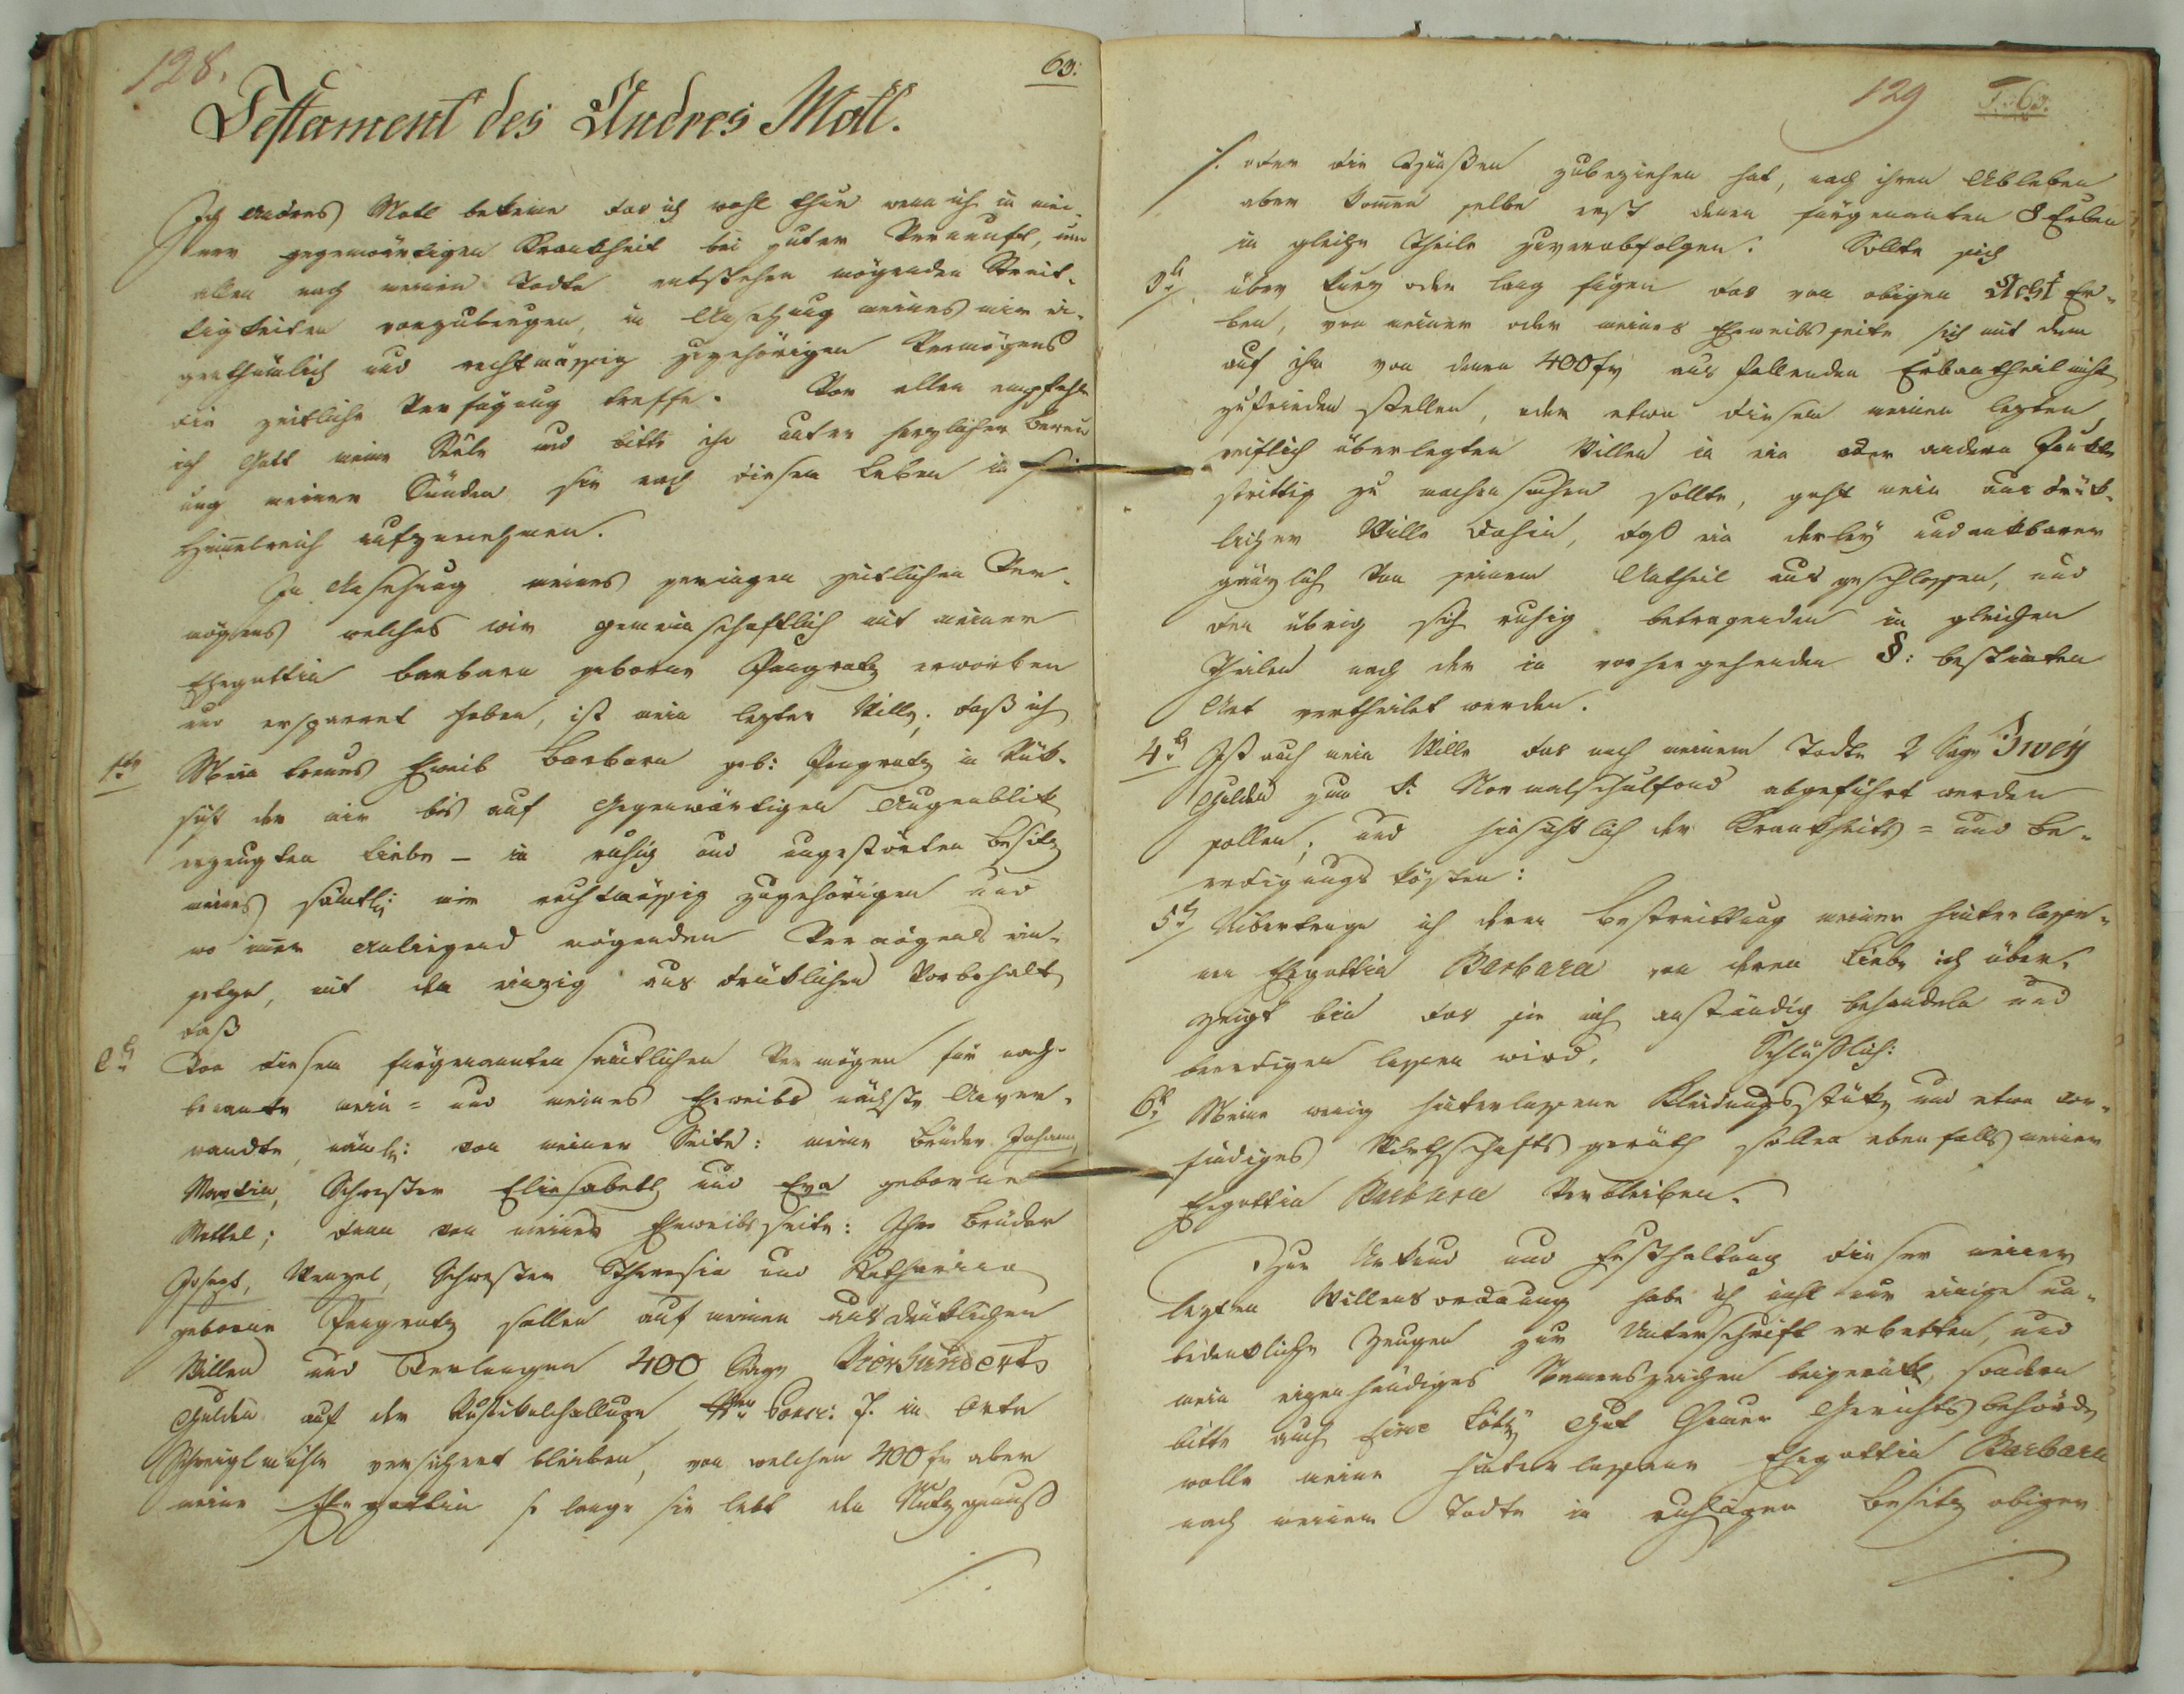 128.
63:
Testament des Andres Motl.
Ich Andres Motl bekene das ich wohl thue wenn ich in mei¬
ner gegenwärtigen Krankheit bei guter Vernunft, um
allen nach meinen Todte entstehen mögenden Streit¬
tigkeiten vorzubeugen, in Ansehung meines mir ei¬
genthümlich und rechtmässig zugehörigen Vermögens
die zeitliche Verfügung treffe. Vor allen empfehle
ich Gott meine Seele und bitte ihn unter herzlicher Bereu
ung meiner Sünden sie nach diesem Leben in sein
Himelreich aufzunehmen.
In Ansehung meines geringen zeitlichen Ver¬
mögens welches wir gemeinschaftlich mit meiner
Ehegattin Barbara geborne Pangratz erworben
und ersparret haben, ist mein lezter Wille, daß ich
1tens Mein treues Eheweib Barbara geb: Pangratz in Rük¬
sicht der mir bis auf Gegenwärtigen Augenblik
erzeugten Liebe – in ruhig und ungestörten Besitz
meines sämtli: mir rechtmässig zugehörigen und
wo imer Anliegend mögenden Vermögens ein¬
setze, mit den einzig ausdrüklichen Vorbehalt
daß
2t: Von diesem fürgenannten sämtlichen Vermögen für nach¬
benante mein= und meines Eheweibs nächste Anver¬
wandte, nämli: von meiner Seite: meine Brüder Johann,
Martin, Schwester Eliesabeth und Eva geborne
Mottel; dann von meiner Eheweibsseite: Ihre Brüder
Joseph, Wenzel, Schwester Theresia und Katharina
geborne Pangratz sollen auf meinen ausdrüklichen
Willen und Verlangen 400 Sage Vierhunderts
Gulden auf der Rustikalchalluge Nro Conscr: 7. in Orte
Schreiglmühle versichert bleiben, von welchen 400 fr aber
meine Ehegattin so lange sie lebt den Nutzgenuß
./.
129
T. 63.
./. oder die Zinßen zubeziehen hat, nach ihren Ableben
aber komen selbe erst denen fürgenanten 8 Erben
in gleiche Theile zuverabfolgen. Sollte sich
3t: über kurz oder lang fügen das von obigen Acht Er¬
ben, von meiner oder meines Eheweibsseite sich mit dem
auf ihn von denen 400 fr aus fallenden Erbantheil nicht
zufrieden stellen, oder etwa diesen meinen lezten
reiflich überlegten Willen in ein oder andern Punkte
strittig zu machen suchen sollte, geht mein ausdrük¬
licher Wille dahin, daß ein derley undankbarer
gänzlich von seinem Antheil ausgeschlossen, und
den übrig sich ruhig betragenden in gleichen
Theilen nach der in vorhergehenden §: bestimten
Art vertheilet werden.
4t: Ist auch mein Wille das nach meinem Todte 2 Sage Zwey
Gulden zum k: Normalschulfond abgeführt werden
sollen; und hinsichtlich der Krankheits= und Be¬
erdigungskösten:
5t: Uibertrage ich deren Bestreittung meiner hinterlasse¬
nen Ehegattin Barbara von deren Liebe ich über¬
zeigt bin das sie mich anständig behandeln und
beerdigen lassen wird. Schlüßlich:
6t: Meine wenig hinterlassene Kleidungsstüke und etwa vor¬
findiges Wirthschafts geräth sollen ebenfalls meiner
Ehegattin Barbara Verbleiben.
Zur Urkund und Festhaltung dieser meiner
lezten Willensordnung habe ich nicht nur einige un¬
bedenkliche Zeugen zur Unterschrift erbetten, und
mein eigenhändiges Namenszeichen beigerükt, sondern
bitte auch eine Löb: Gut Gerichtsbehörde
wolle meine hinterlassene Ehegattin Barbara
nach meinem Todte in ruhigen Besitz obiger
./.